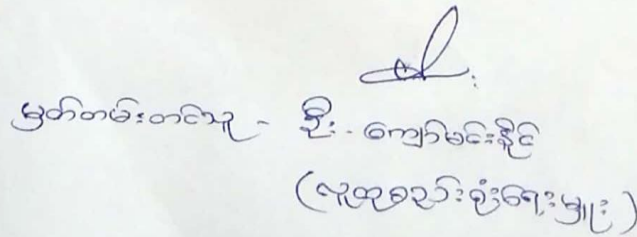 မှတ်တမ်းတင်သူ - ဦး - ကျော်မင်းနိုင်
(လူထုစည်းရုံးရေးမှူး)